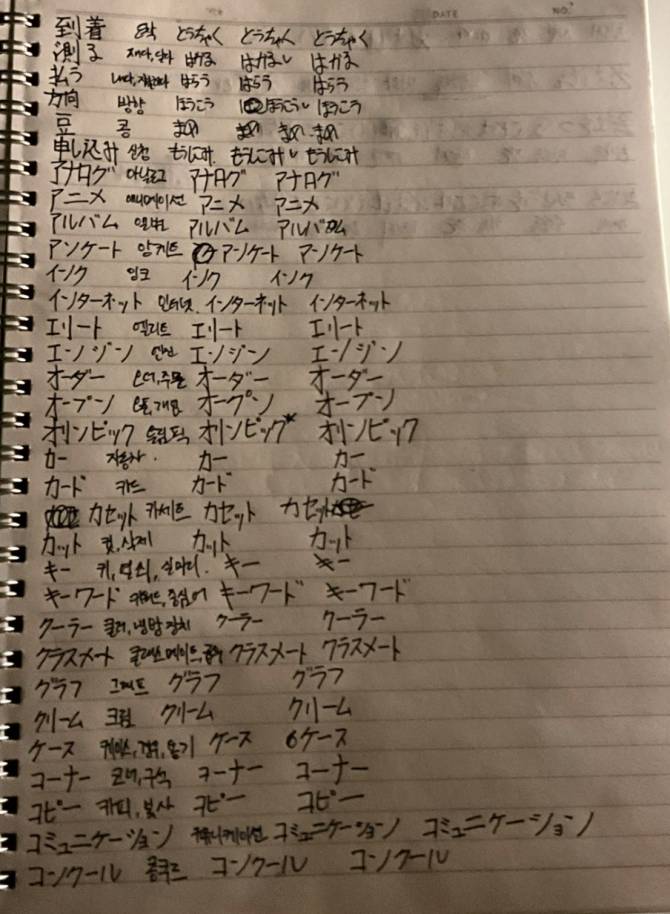 DATE NO.
到着 도착 とうちゃく とうちゃく とうちゃく
測る 재다, 달다 はかる はかる はかる
払う 내다, 지불하다 はらう はらう はらう
方向 방향 ほうこう ほうこう ほうこう
豆 콩 まめ まめ まめ まめ
申し込み 신청 もうしこみ もうしこみ もうしこみ
アナログ 아날로그 アナログ アナログ
アニメ 애니메이션 アニメ アニメ
アルバム 앨범 アルバム アルバム
アンケート 앙케트 アンケート アンケート
インク 잉크 インク インク
インターネット 인터넷 インターネット インターネット
エリート 엘리트 エリート エリート
エンジン 엔진 エンジン エンジン
オーダー 오더, 주문 オーダー オーダー
オープン 오픈, 개업 オープン オープン
オリンピック 올림픽 オリンピック オリンピック
カー 자동차 カー カー
カード 카드 カード カード
カセット 카세트 カセット カセット
カット 컷, 삭제 カット カット
キー 키, 열쇠, 실마리 キー キー
キーワード 키워드, 중심어 キーワード キーワード
クーラー 쿨러, 냉방장치 クーラー クーラー
クラスメート 클래스메이트, クラスメート クラスメート
グラフ 그래프 グラフ グラフ
クリーム 크림 クリーム クリーム
ケース 케이스, 경우, 용기 ケース ケース
コーナー 코너, 구석 コーナー コーナー
コピー 카피, 복사 コピー コピー
コミュニケーション 커뮤니케이션 コミュニケーション コミュニケーション
コンクール 콩쿠르 コンクール コンクール